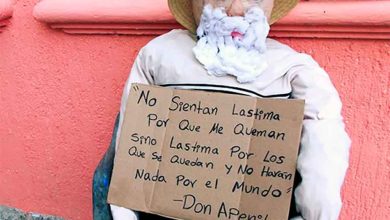 "No Sientan Lastima
Por Que Me Queman
Sino Lastima Por Los
Que Se Quedan y No Haran
Nada Por el Mundo"
-Don